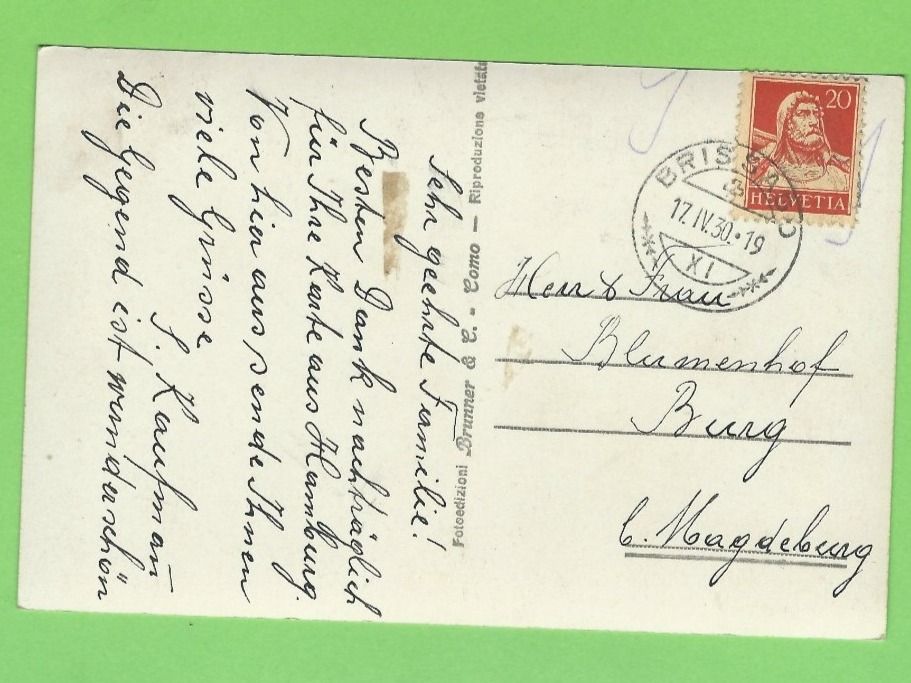 Sehr geehrte Familie!
Besten Dank nachträglich
für Ihre Karte aus Hamburg.
Von hier aus sende Ihnen
viele Grüsse
S. Kaufmann
Die Gegend ist wunderschön
Fotoedizioni Brunner & C. - Como — Riproduzione vietata
20
HELVETIA
BRISSAGO
17.IV.30.19
XI
Herr & Frau
Blumenhof
Burg
b. Magdeburg